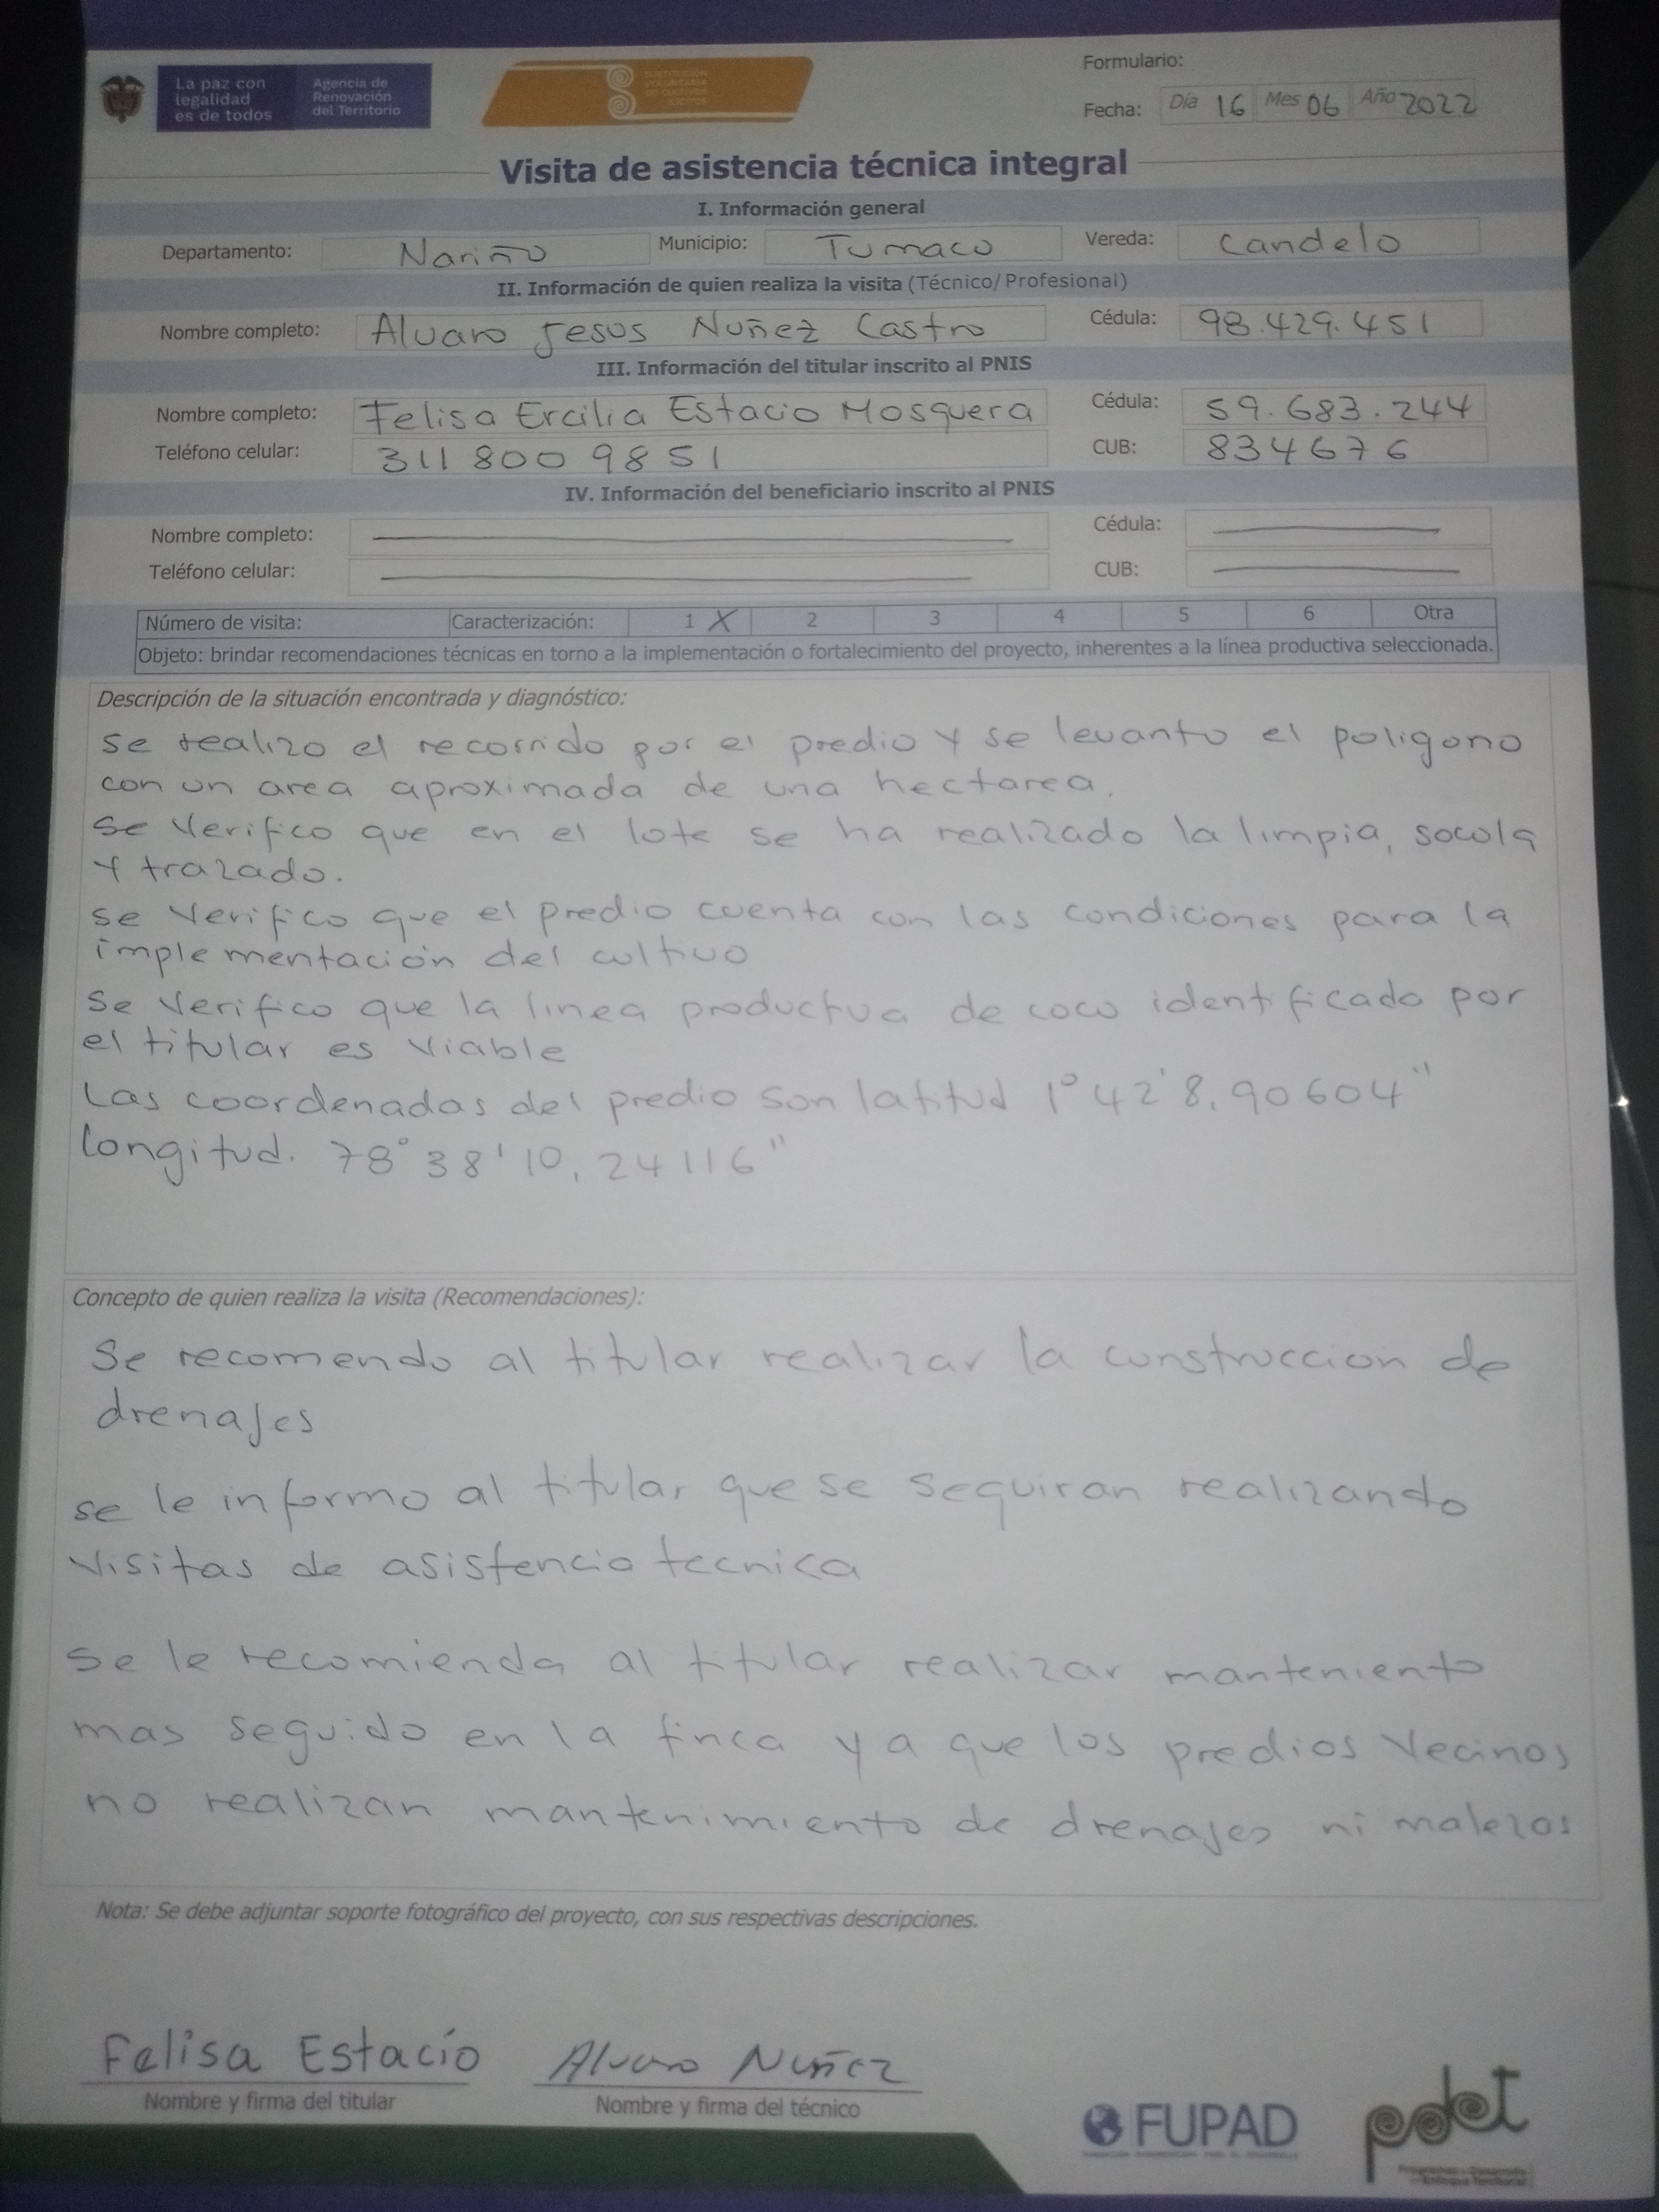 La paz con legalidad es de todos
Agencia de Renovación del Territorio
SUSTITUCIÓN VOLUNTARIA DE CULTIVOS ILÍCITOS
Formulario:
Fecha: Día 16 Mes 06 Año 2022
Visita de asistencia técnica integral
I. Información general
Departamento: Nariño Municipio: Tumaco Vereda: Candelo
II. Información de quien realiza la visita (Técnico/Profesional)
Nombre completo: Alvaro Jesus Nuñez Castro Cédula: 98.429.451
III. Información del titular inscrito al PNIS
Nombre completo: Felisa Ercilia Estacio Mosquera Cédula: 59.683.244
Teléfono celular: 311 800 9851 CUB: 834676
IV. Información del beneficiario inscrito al PNIS
Nombre completo: Cédula:
Teléfono celular: CUB:
Número de visita: Caracterización: 1 X 2 3 4 5 6 Otra
Objeto: brindar recomendaciones técnicas en torno a la implementación o fortalecimiento del proyecto, inherentes a la línea productiva seleccionada.
Descripción de la situación encontrada y diagnóstico:
se realizo el recorrido por el predio y se levanto el poligono
con un area aproximada de una hectarea.
se verifico que en el lote se ha realizado la limpia, socola
y trazado.
se verifico que el predio cuenta con las condiciones para la
implementación del cultivo
se verifico que la linea productiva de coco identificado por
el titular es viable
Las coordenadas del predio son latitud 1° 42' 8,90604"
longitud. 78° 38' 10,24116"
Concepto de quien realiza la visita (Recomendaciones):
Se recomendo al titular realizar la construccion de
drenajes
se le informo al titular que se seguiran realizando
visitas de asistencia tecnica
se le recomienda al titular realizar manteniento
mas seguido en la finca ya que los predios vecinos
no realizan mantenimiento de drenajes ni malezas
Nota: Se debe adjuntar soporte fotográfico del proyecto, con sus respectivas descripciones.
Felisa Estacio Alvaro Nuñez
Nombre y firma del titular Nombre y firma del técnico
FUPAD pdet